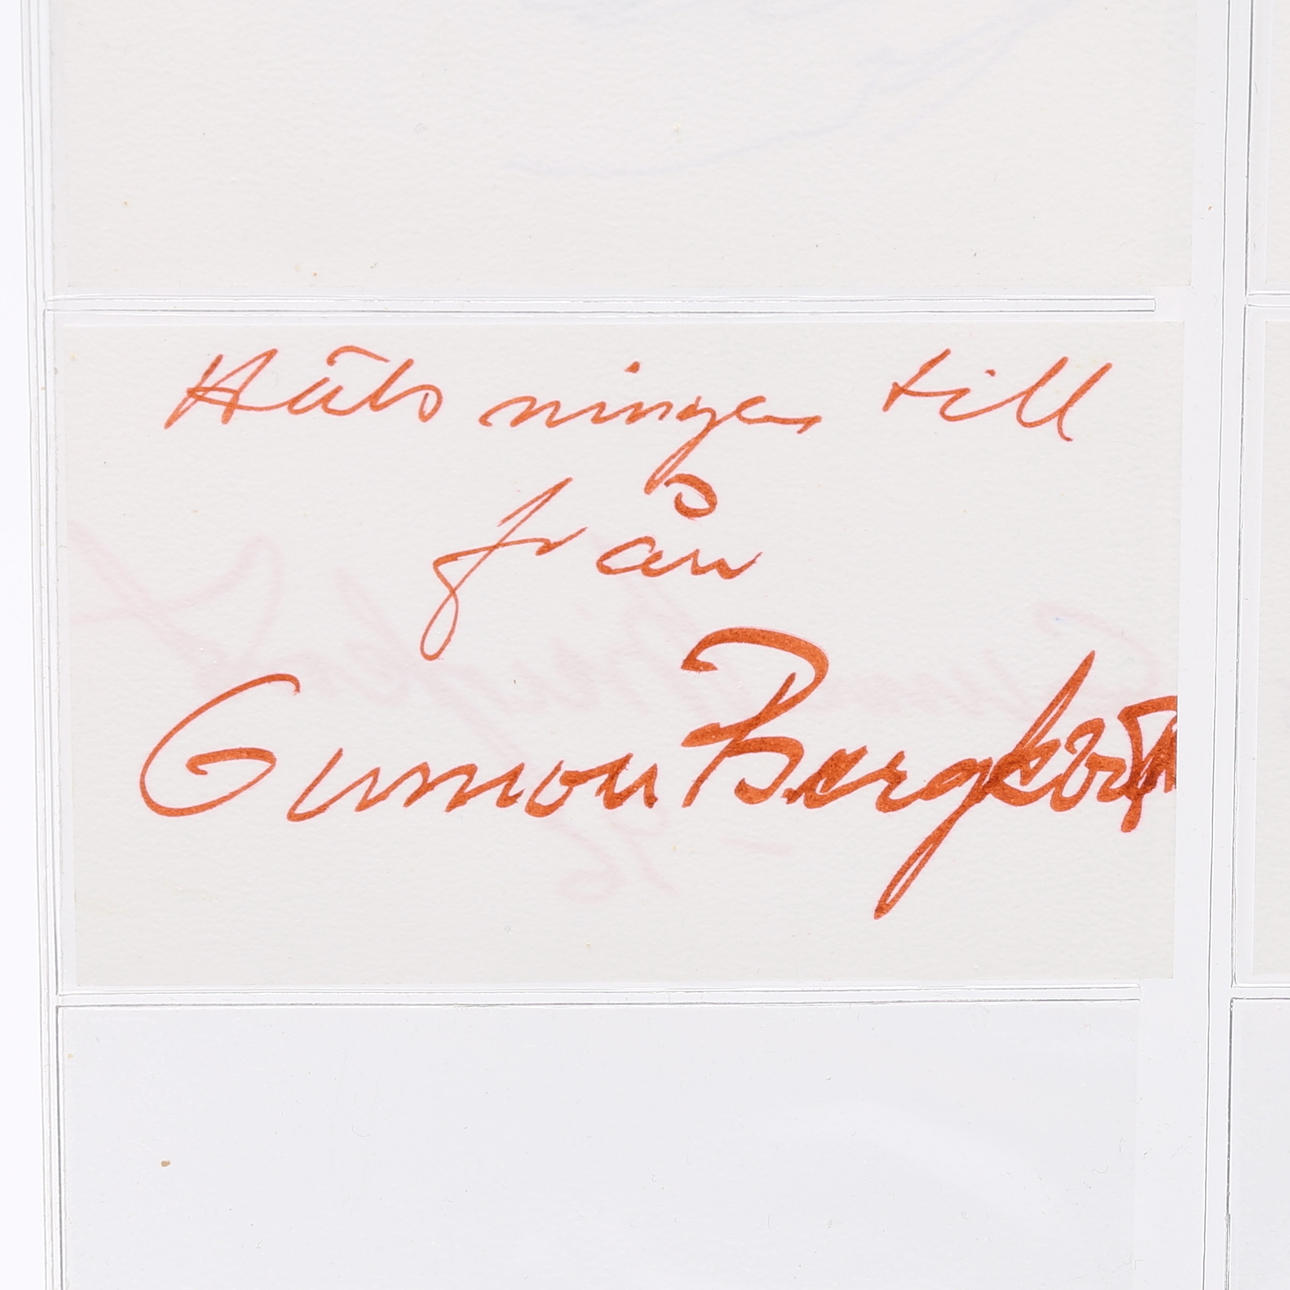 Hälsningen till
från
Gunnar Bergkvist